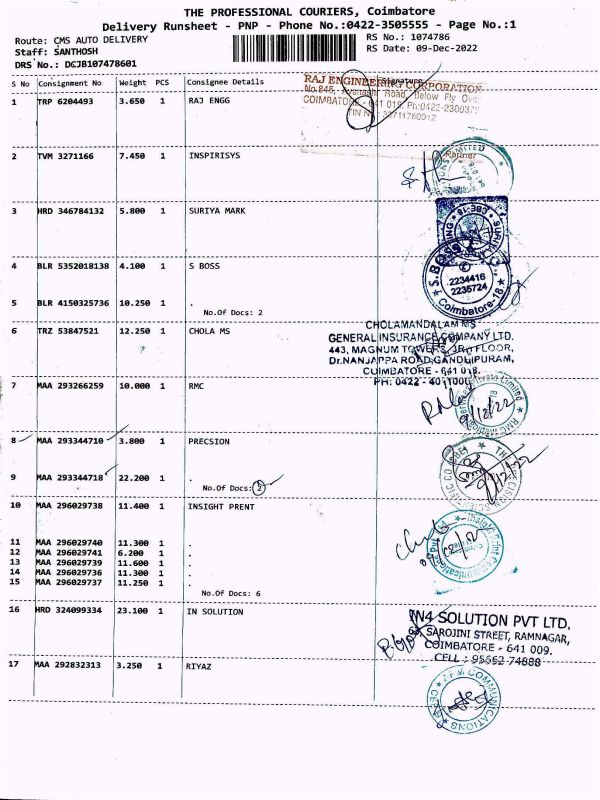 THE PROFESSIONAL COURIERS, Coimbatore
Delivery Runsheet - PNP - Phone No.:0422-3505555 - Page No.:1
Route: CMS AUTO DELIVERY
RS No.: 1074786
Staff: SANTHOSH
RS Date: 09-Dec-2022
DRS No.: DCJB107478601
S No Consignment No Weight PCS Consignee Details Signature
1 TRP 6204493 3.650 1 RAJ ENGG
RAJ ENGINEERING CORPORATION
No.845, Avinashi Road, Below Fly Over
COIMBATORE - 641 018. Ph:0422-2300372
Partner
2 TVM 3271166 7.450 1 INSPIRISYS
3 HRD 346784132 5.800 1 SURIYA MARK
4 BLR 5352018138 4.100 1 S BOSS
S.BOSS
2234416
2235724
Coimbatore-18
5 BLR 4150325736 10.250 1 .
No.Of Docs: 2
6 TRZ 53847521 12.250 1 CHOLA MS
CHOLAMANDALAM MS
GENERAL INSURANCE COMPANY LTD.
443, MAGNUM TOWERS, 3Rd FLOOR,
Dr.NANJAPPA ROAD, GANDHIPURAM,
COIMBATORE - 641 018.
PH: 0422 - 4011000
7 MAA 293266259 10.000 1 RMC
9/12/22
8 MAA 293344710 3.800 1 PRECSION
9 MAA 293344718 22.200 1 .
No.Of Docs: 2
9/12/22
10 MAA 296029738 11.400 1 INSIGHT PRENT
11 MAA 296029740 11.300 1 .
12 MAA 296029741 6.200 1 .
13 MAA 296029739 11.600 1 .
14 MAA 296029736 11.300 1 .
15 MAA 296029737 11.250 1 .
No.Of Docs: 6
16 HRD 324099334 23.100 1 IN SOLUTION
IN4 SOLUTION PVT LTD,
SAROJINI STREET, RAMNAGAR,
COIMBATORE - 641 009.
CELL : 95662 74888
17 MAA 292832313 3.250 1 RIYAZ
COMMUNICATIONS